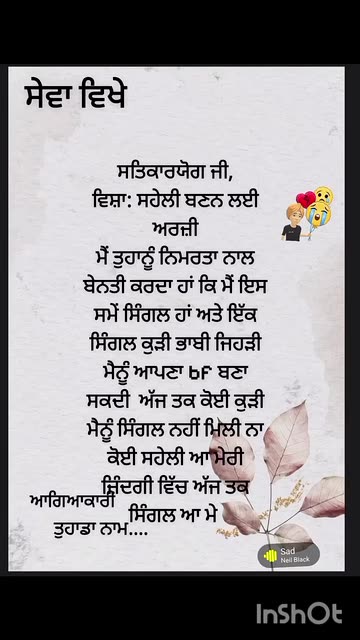 ਸੇਵਾ ਵਿਖੇ
ਸਤਿਕਾਰਯੋਗ ਜੀ,
ਵਿਸ਼ਾ: ਸਹੇਲੀ ਬਣਨ ਲਈ
ਅਰਜ਼ੀ
ਮੈਂ ਤੁਹਾਨੂੰ ਨਿਮਰਤਾ ਨਾਲ
ਬੇਨਤੀ ਕਰਦਾ ਹਾਂ ਕਿ ਮੈਂ ਇਸ
ਸਮੇਂ ਸਿੰਗਲ ਹਾਂ ਅਤੇ ਇੱਕ
ਸਿੰਗਲ ਕੁੜੀ ਭਾਬੀ ਜਿਹੜੀ
ਮੈਨੂੰ ਆਪਣਾ bF ਬਣਾ
ਸਕਦੀ ਅੱਜ ਤਕ ਕੋਈ ਕੁੜੀ
ਮੈਨੂੰ ਸਿੰਗਲ ਨਹੀਂ ਮਿਲੀ ਨਾ
ਕੋਈ ਸਹੇਲੀ ਆ ਮੇਰੀ
ਜ਼ਿੰਦਗੀ ਵਿੱਚ ਅੱਜ ਤਕ
ਸਿੰਗਲ ਆ ਮੇ
ਆਗਿਆਕਾਰੀ
ਤੁਹਾਡਾ ਨਾਮ....
Sad
Neil Black
InShOt